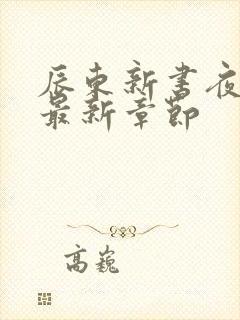 辰东新书夜
最新章节
高巍